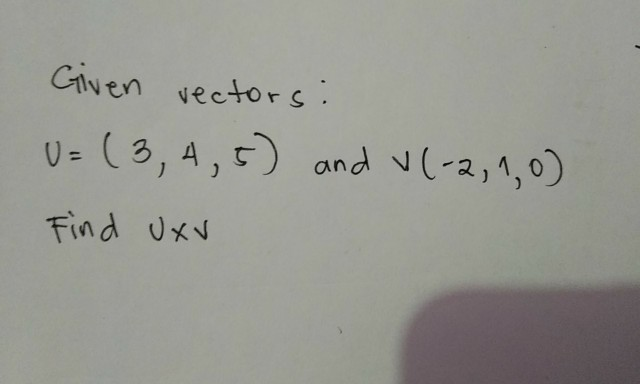 Given vectors:
U= (3, 4, 5) and V(-2, 1, 0)
Find UxV